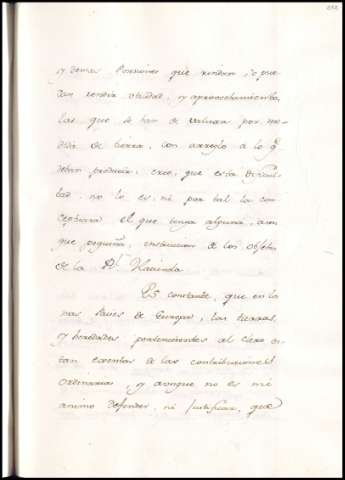 y demas Porciones que rindan, o pue-
dan rendir utilidad, y aprovechamiento,
las que se han de valuar por me-
dida de tierra, con arreglo a lo q.e
deban producir, creo, que esta dificul-
tad, no lo es, ni por tal la con-
ceptuará el que tenga alguna, aun
que pequeña, instruccion de los objetos
de la R.l Hacienda.
Es constante, que en lo
mas Paises de Europa, las tierras,
y heredades pertenecientes al Clero es-
tan exentas de las contribuciones
ordinarias, y aunque no es mi
animo defender, ni justificar, que